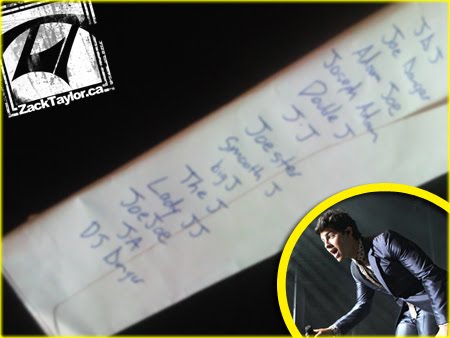 ZackTaylor.ca
JDJ
Joe Danger
Adam Joe
Joseph Adam
Double J
J.J
Joester
Smooth J
big J
The J
Lady JJ
JoeJoe
JA
DJ Danger